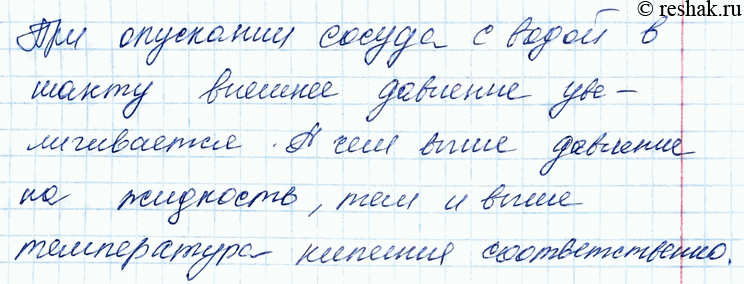 © reshak.ru
При опускании сосуда с водой в
шахту внешнее давление уве-
личивается. А чем выше давление
на жидкость, тем и выше
температура кипения соответственно.